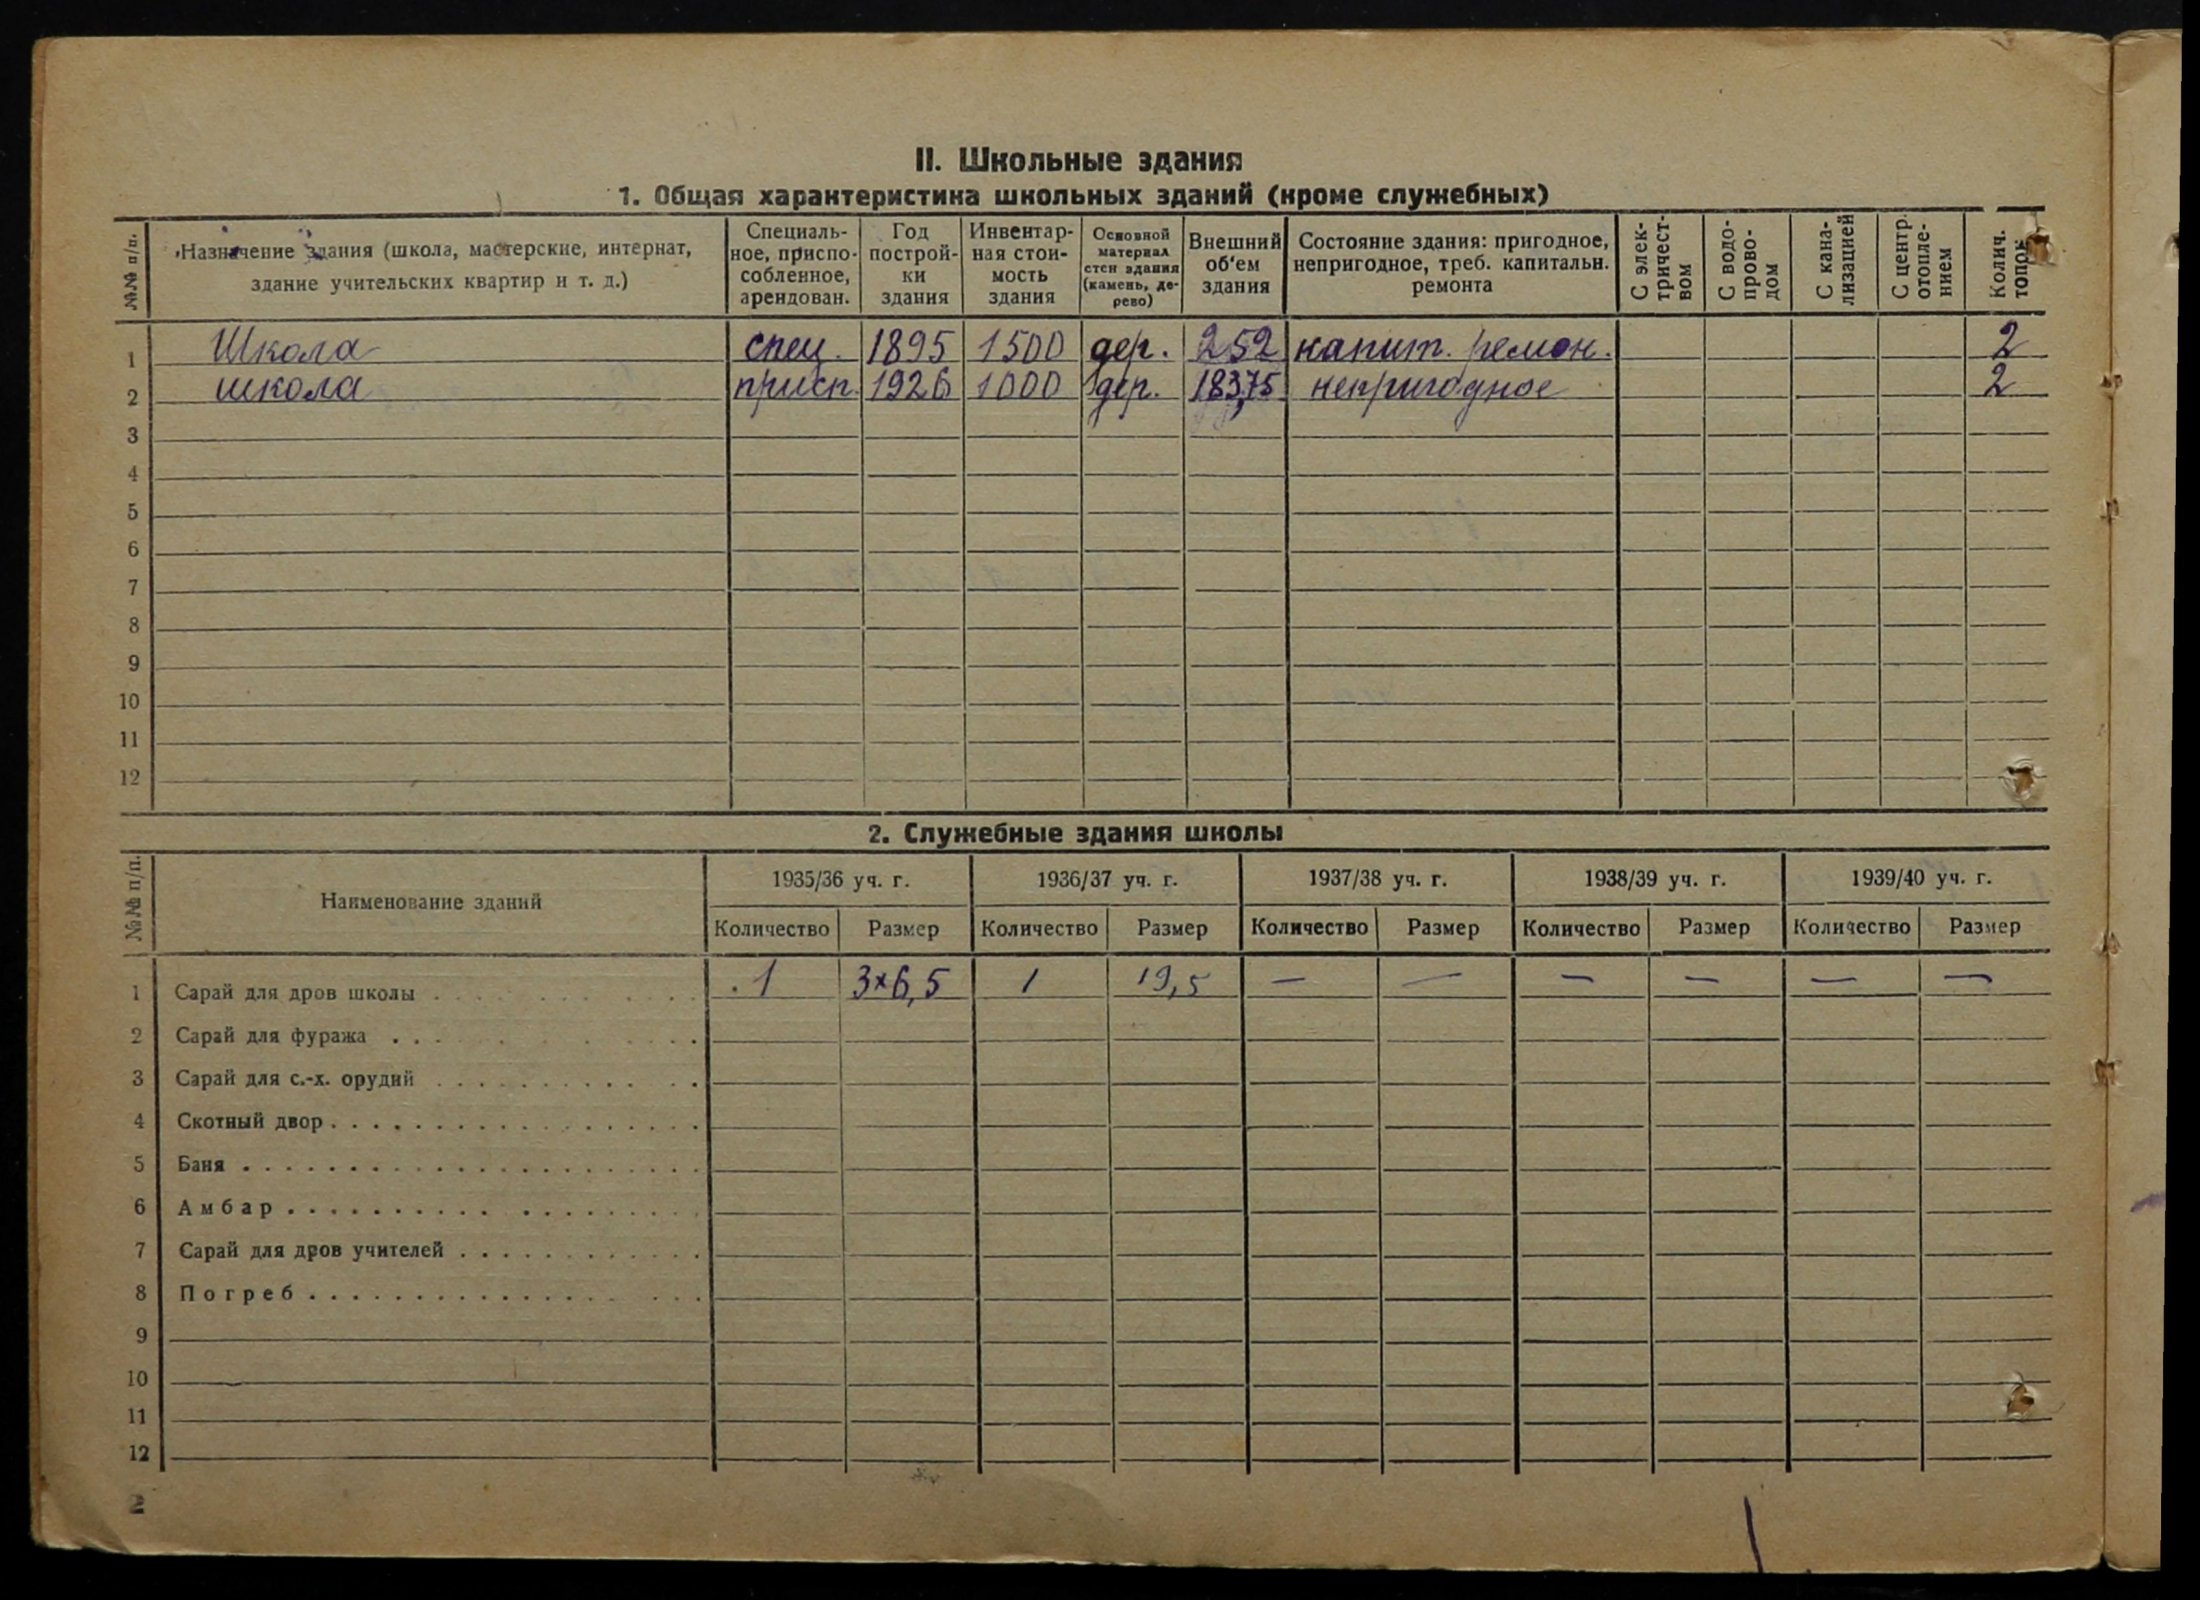 II. Школьные здания
1. Общая характеристика школьных зданий (кроме служебных)
№№ п/п. Назначение здания (школа, мастерские, интернат, здание учительских квартир и т. д.) Специальное, приспособленное, арендован. Год постройки здания Инвентарная стоимость здания Основной материал стен здания (камень, дерево) Внешний об'ем здания Состояние здания: пригодное, непригодное, треб. капитальн. ремонта С электричеством С водопроводом С канализацией С центр. отоплением Колич. топок
1 Школа спец. 1895 1500 дер. 252 капит. ремон. 2
2 школа присп. 1926 1000 дер. 183,75 непригодное 2
3
4
5
6
7
8
9
10
11
12
2. Служебные здания школы
№№ п/п. Наименование зданий 1935/36 уч. г. 1936/37 уч. г. 1937/38 уч. г. 1938/39 уч. г. 1939/40 уч. г.
Количество Размер Количество Размер Количество Размер Количество Размер Количество Размер
1 Сарай для дров школы 1 3×6,5 1 19,5 — — — — — —
2 Сарай для фуража
3 Сарай для с.-х. орудий
4 Скотный двор
5 Баня
6 Амбар
7 Сарай для дров учителей
8 Погреб
9
10
11
12
2